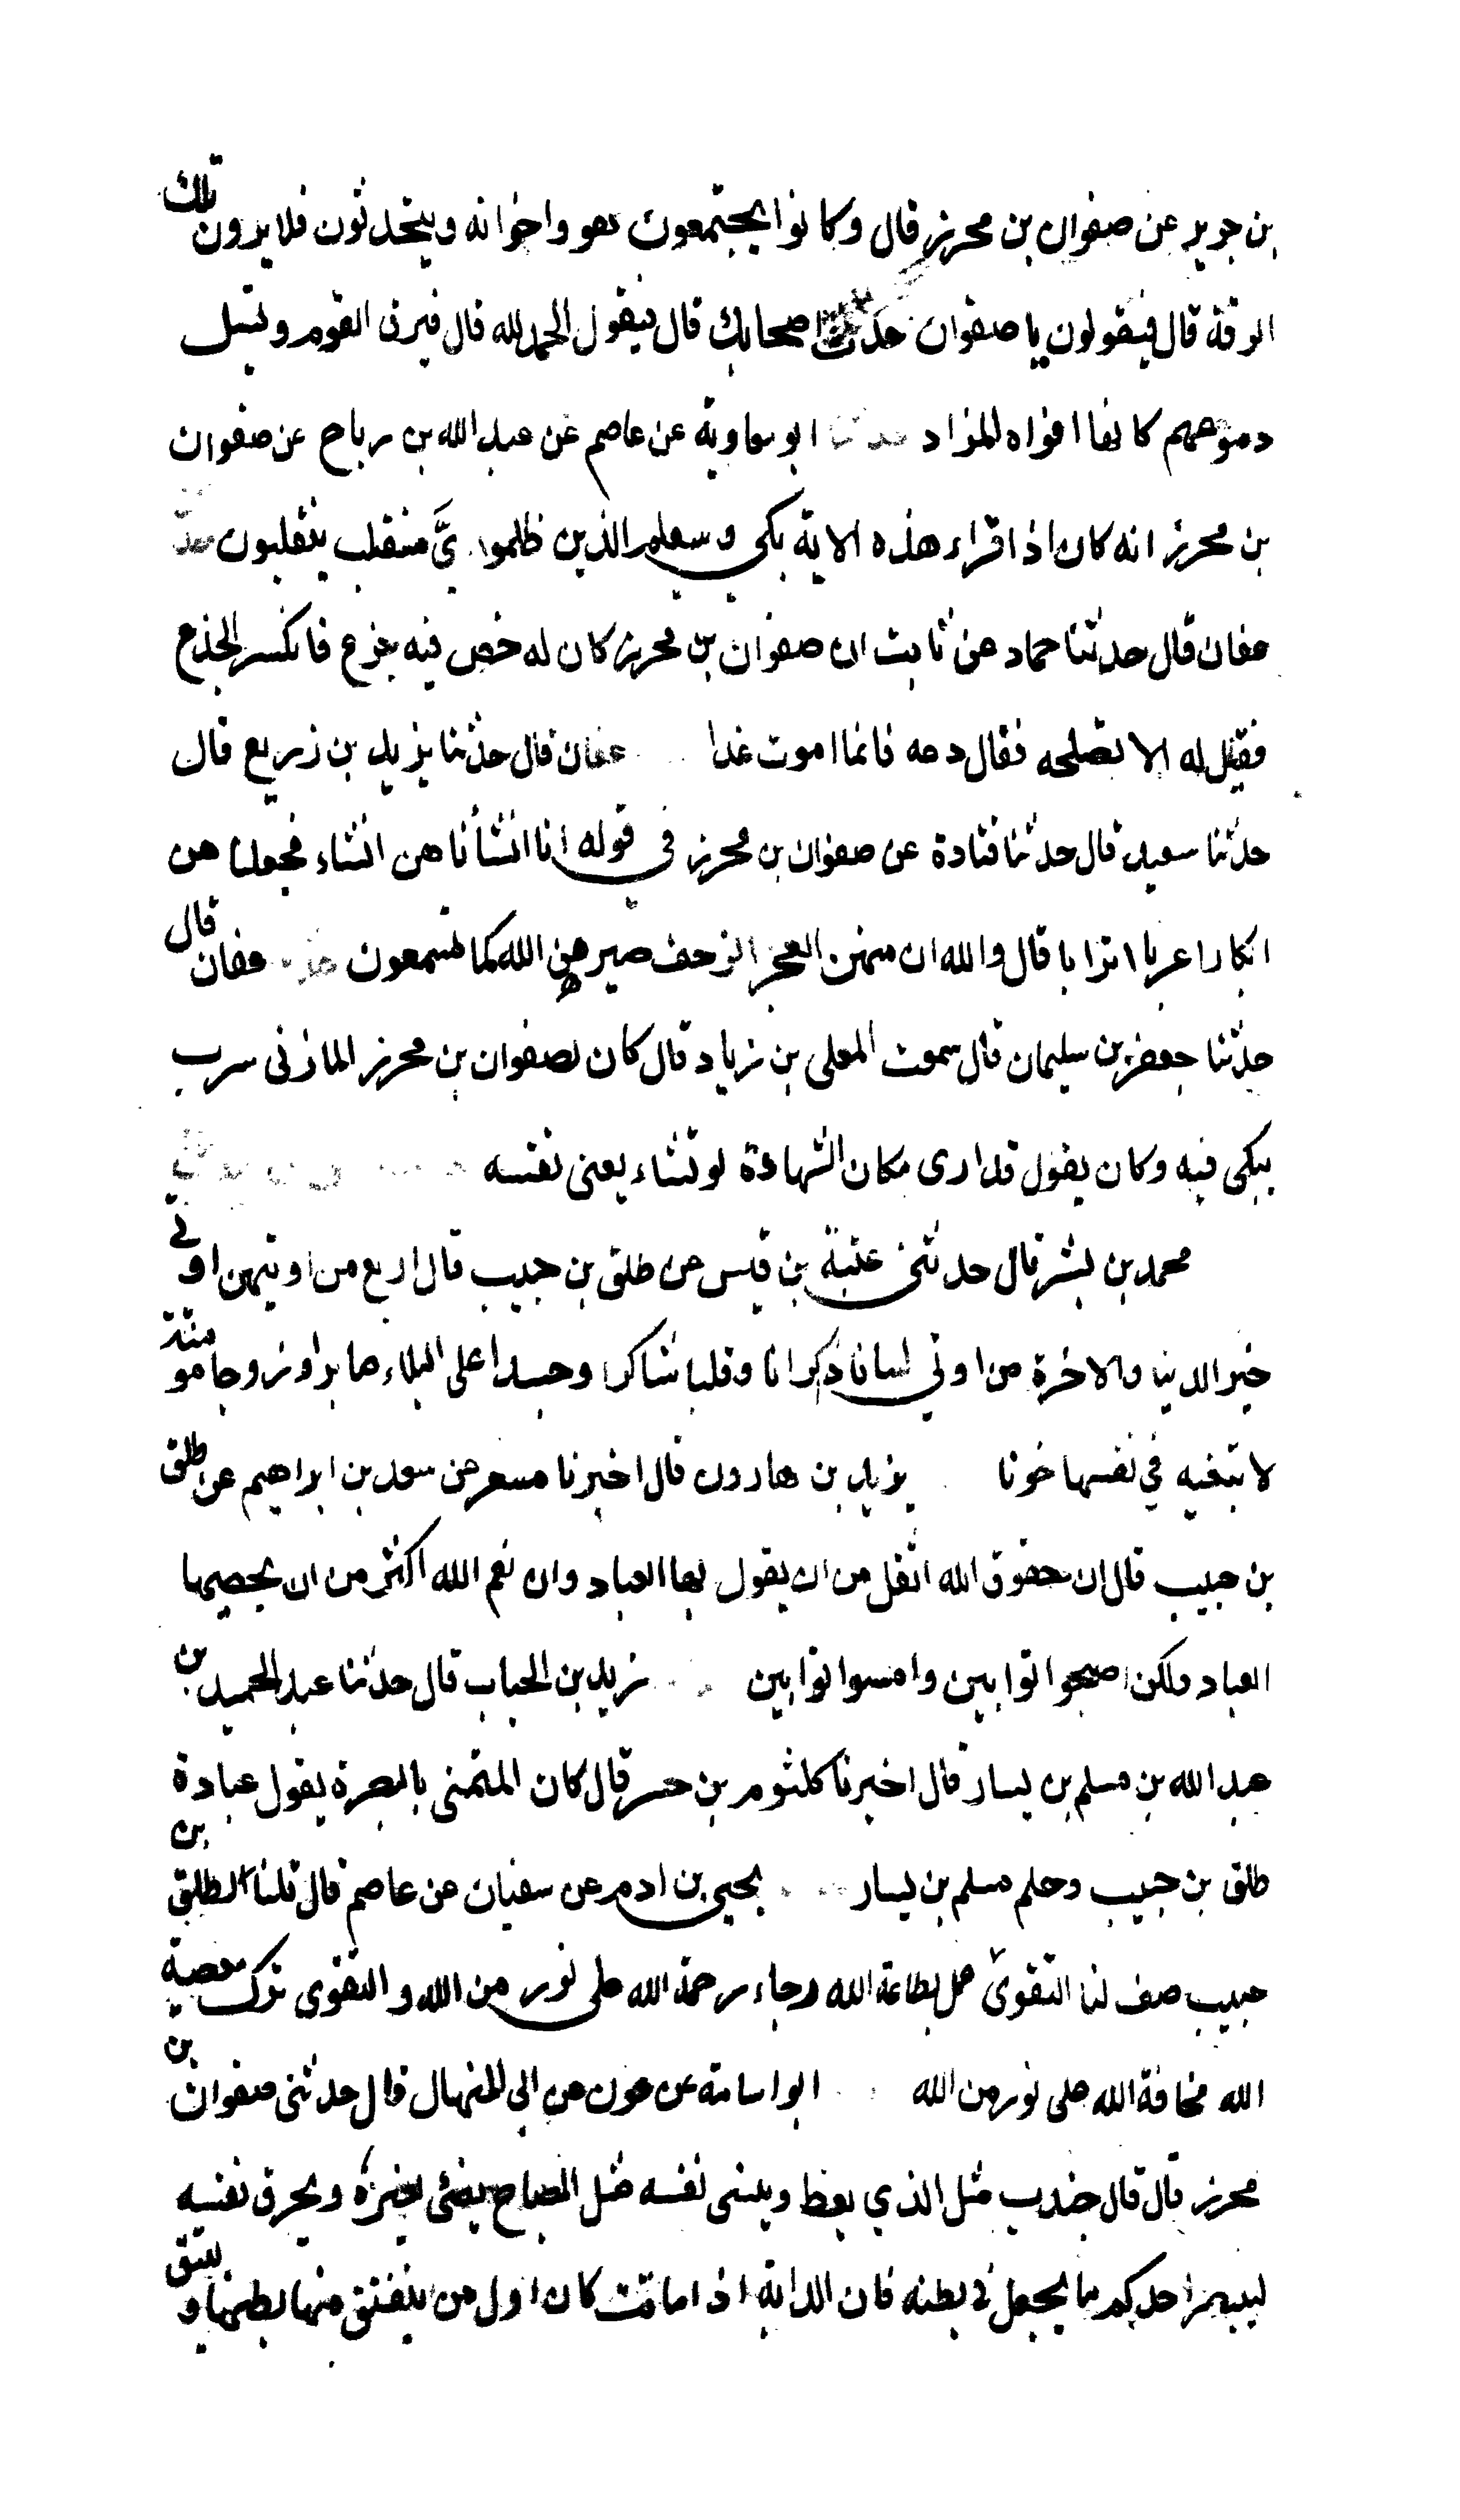 بن جرير عن صفوان بن محرز قال وكانوا يجتمعون هو واخوانه ويتحدثون فلا يرون تلك
الرقة قال فيقولون يا صفوان حدث اصحابك قال فيقول الحمد لله قال فيرق القوم وتسيل
دموعهم كانها افواه المزاد حدثنا ابو معاوية عن عاصم عن عبد الله بن رباح عن صفوان
بن محرز انه كان اذا قراء هذه الاية بكى وسيعلم الذين ظلموا ىَّ منقلب ينقلبون حدثنا
عفان قال حدثنا حماد عن ثابت ان صفوان بن محرز كان له خص فيه جزع فانكسر الجذع
فقيل له الا تصلحه فقال دعه فانما اموت غدا عفان قال حدثنا يزيد بن زريع قال
حدثنا سعيد قال حدثنا قتادة عن صفوان بن محرز في قوله انا انشأناهن انشاء فجعلناهن
ابكارا عربا اترابا قال والله ان منهن العجز الزحف صيرهن الله كما تسمعون حدثنا عفان قال
حدثنا جعفر بن سليمان قال سمعت المعلى بن زياد قال كان لصفوان بن محرز المازنى سرب
يبكى فيه وكان يقول قد ارى مكان الشهادة لو تشاء يعنى نفسه
محمد بن بشر قال حدثنى عتبة بن قيس عن طلق بن حبيب قال اربع من اوتيهن اوتى
خير الدنيا والاخرة من اوتي لسانا ذكرانا وقلبا شاكرا وجسدا على البلاء صابرا وزوجا مومنة
لا تبغيه في نفسها خونا يزيد بن هارون قال اخبرنا مسعر عن سعد بن ابراهيم عن طلق
بن حبيب قال ان حقوق الله اثقل من ان يقول بها العباد وان نعم الله اكثر من ان يحصيها
العباد ولكن اصبحوا توابين وامسوا توابين زيد بن الحباب قال حدثنا عبد الحميد بن
عبد الله بن مسلم بن يسار قال اخبرنا كلثوم بن حسر قال كان المتمنى بالبصرة يقول عبادة
طلق بن حبيب وحلم مسلم بن يسار يحيى بن ادم عن سفيان عن عاصم قال قلنا لطلق بن
حبيب صف لنا التقوى عمل بطاعة الله رجاء رحمة الله على نور من الله والتقوى ترك معصية
الله مخافة الله على نور من الله ابو اسامة عن عون عن ابى المنهال قال حدثنى صفوان بن
محرز قال قال جندب مثل الذي يعظ وينسى نفسه مثل المصباح يضئ لغيره ويحرق نفسه
ليبصر احدكم ما يجعل في بطنه فان الدابة اذا ماتت كان اول من ينفتق منها بطنها و ليتق